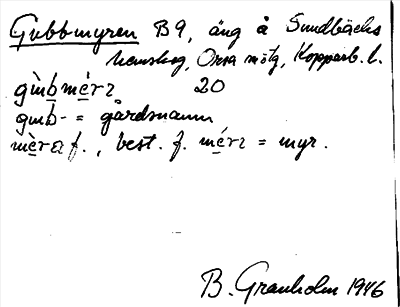 Gubbmyren B9, äng å Sundbäcks
hemskog, Orsa mötg, Kopparb. l.
gùb̥mé̱rɪ 20
gub- = gårdsmann
mè̱ra f., best. f. mé̱rɪ = myr.
B. Granholm 1946